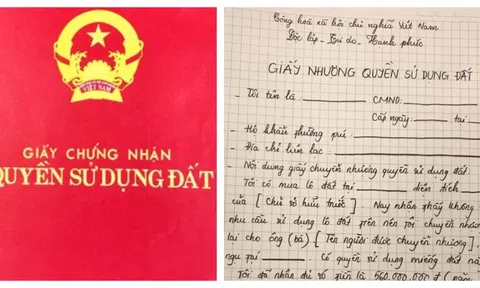 VIỆT NAM
GIẤY CHỨNG NHẬN
QUYỀN SỬ DỤNG ĐẤT
Cộng hoà xã hội chủ nghĩa Việt Nam
Độc lập - Tự do - Hạnh phúc
GIẤY NHƯỢNG QUYỀN SỬ DỤNG ĐẤT
- Tôi tên là: CMND:
Cấp ngày: tại
- Hộ khẩu thường trú:
- Địa chỉ liên lạc:
- Nội dung giấy chuyển nhượng quyền sử dụng đất.
Tôi có mua lô đất tại diện tích
của [Chủ sở hữu trước]. Nay nhận thấy không
nhu cầu sử dụng lô đất trên nên tôi chuyển nhượ
lại cho ông (bà) [Tên người được chuyển nhượng],
ngụ tại Có quyền sử dụng miếng đất nà
Tôi đã nhận đủ số tiền là 560.000.000 đ (năm